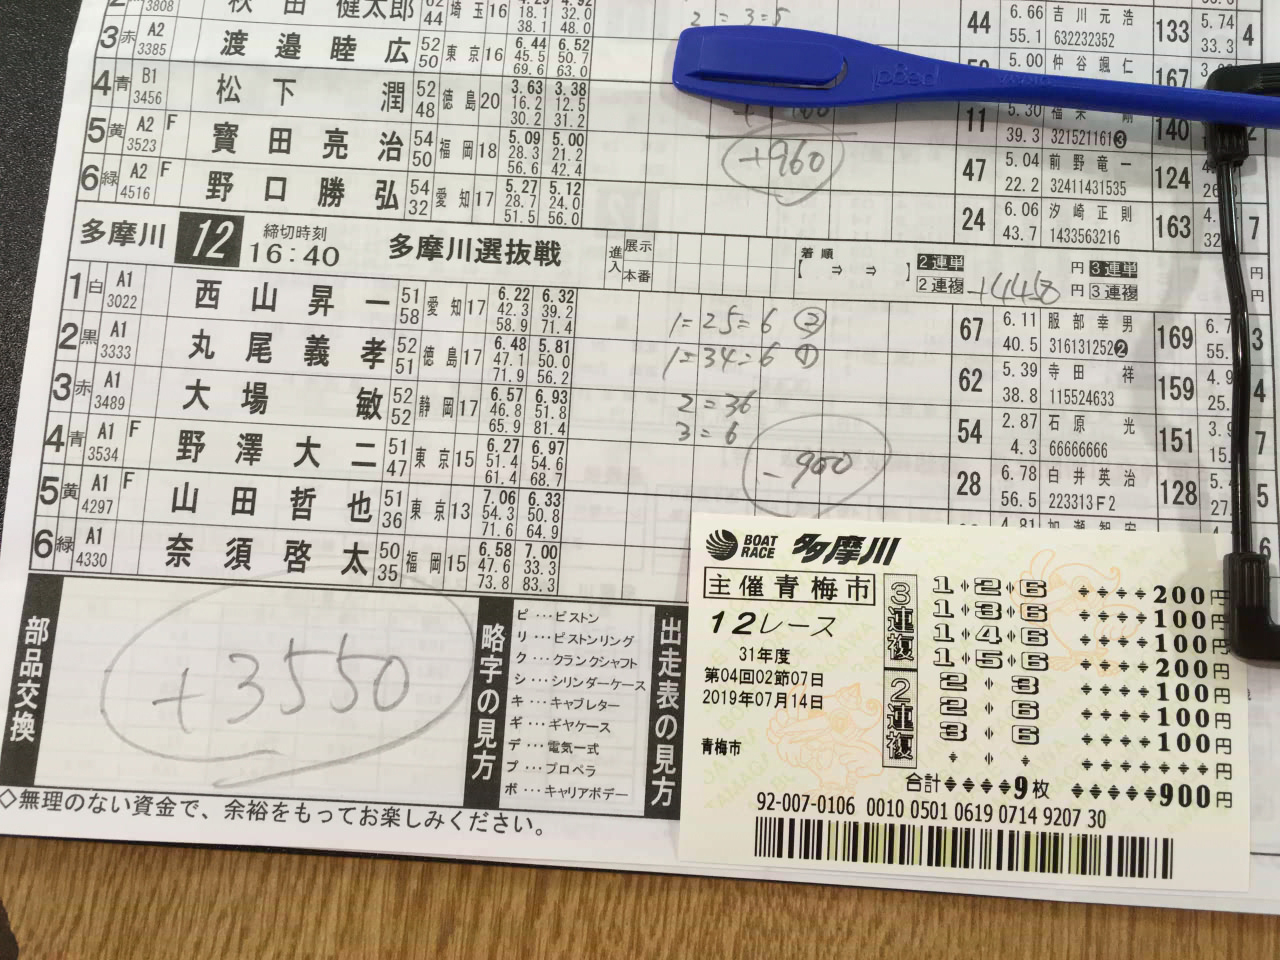 3808 秋田健太郎 62 44 埼玉 16 4.29 18.1 38.1 4.92 32.0 48.0
2=3=5
3 赤 A2 3385 渡邉睦広 52 50 東京 16 6.44 45.5 69.6 6.52 50.7 63.0
44 6.66 55.1 吉川元浩 632232352 133 5.74 33.3 4
4 青 B1 3456 松下潤 52 48 徳島 20 3.63 16.2 30.2 3.38 12.5 31.2
5.00 仲谷颯仁 167
5 黄 A2 3523 F 寳田亮治 54 50 福岡 18 5.09 28.3 56.6 5.00 21.2 42.4
11 5.30 39.3 321521161❸ 140
+960
6 緑 A2 4516 F 野口勝弘 54 32 愛知 17 5.27 28.7 51.5 5.12 24.0 56.0
47 5.04 22.2 前野竜一 32411431535 124
24 6.06 43.7 汐崎正則 1433563216 163 7
多摩川 12 締切時刻 16:40 多摩川選抜戦 進入 展示 本番 着順 【 ⇒ ⇒ 】 2連単 円 3連単 円
2連複 +4450 円 3連複 円
1 白 A1 3022 西山昇一 51 58 愛知 17 6.22 42.3 58.9 6.32 39.2 71.4
1=25=6 ②
67 6.11 40.5 服部幸男 316131252❷ 169 3
2 黒 A1 3333 丸尾義孝 52 51 徳島 17 6.48 47.1 71.9 5.81 50.0 56.2
1=34=6 ①
62 5.39 38.8 寺田祥 115524633 159 4
3 赤 A1 3489 大場敏 52 52 静岡 17 6.57 46.8 65.9 6.93 51.8 81.4
2=36
54 2.87 4.3 石原光 66666666 151 7
4 青 A1 3534 F 野澤大二 51 47 東京 15 6.27 51.4 61.4 6.97 54.6 68.7
3=6
−900
28 6.78 56.5 白井英治 223313F2 128 5
5 黄 A1 4297 F 山田哲也 51 36 東京 13 7.06 54.3 71.6 6.33 50.8 64.9
4.81 加瀬智宏
6 緑 A1 4330 奈須啓太 50 35 福岡 15 6.58 47.6 73.8 7.00 33.3 83.3
6
部品交換
+3550
略字の見方
ピ…ピストン
リ…ピストンリング
ク…クランクシャフト
シ…シリンダーケース
キ…キャブレター
ギ…ギヤケース
デ…電気一式
プ…プロペラ
ボ…キャリアボデー
出走表の見方
◇無理のない資金で、余裕をもってお楽しみください。
pagal
BOAT RACE 多摩川
主催青梅市
12レース
31年度
第04回02節07日
2019年07月14日
青梅市
3連複
1 2 6 200円
1 3 6 100円
1 4 6 100円
1 5 6 200円
2連複
2 3 100円
2 6 100円
3 6 100円
円
合計 9枚 900円
92-007-0106 0010 0501 0619 0714 9207 30